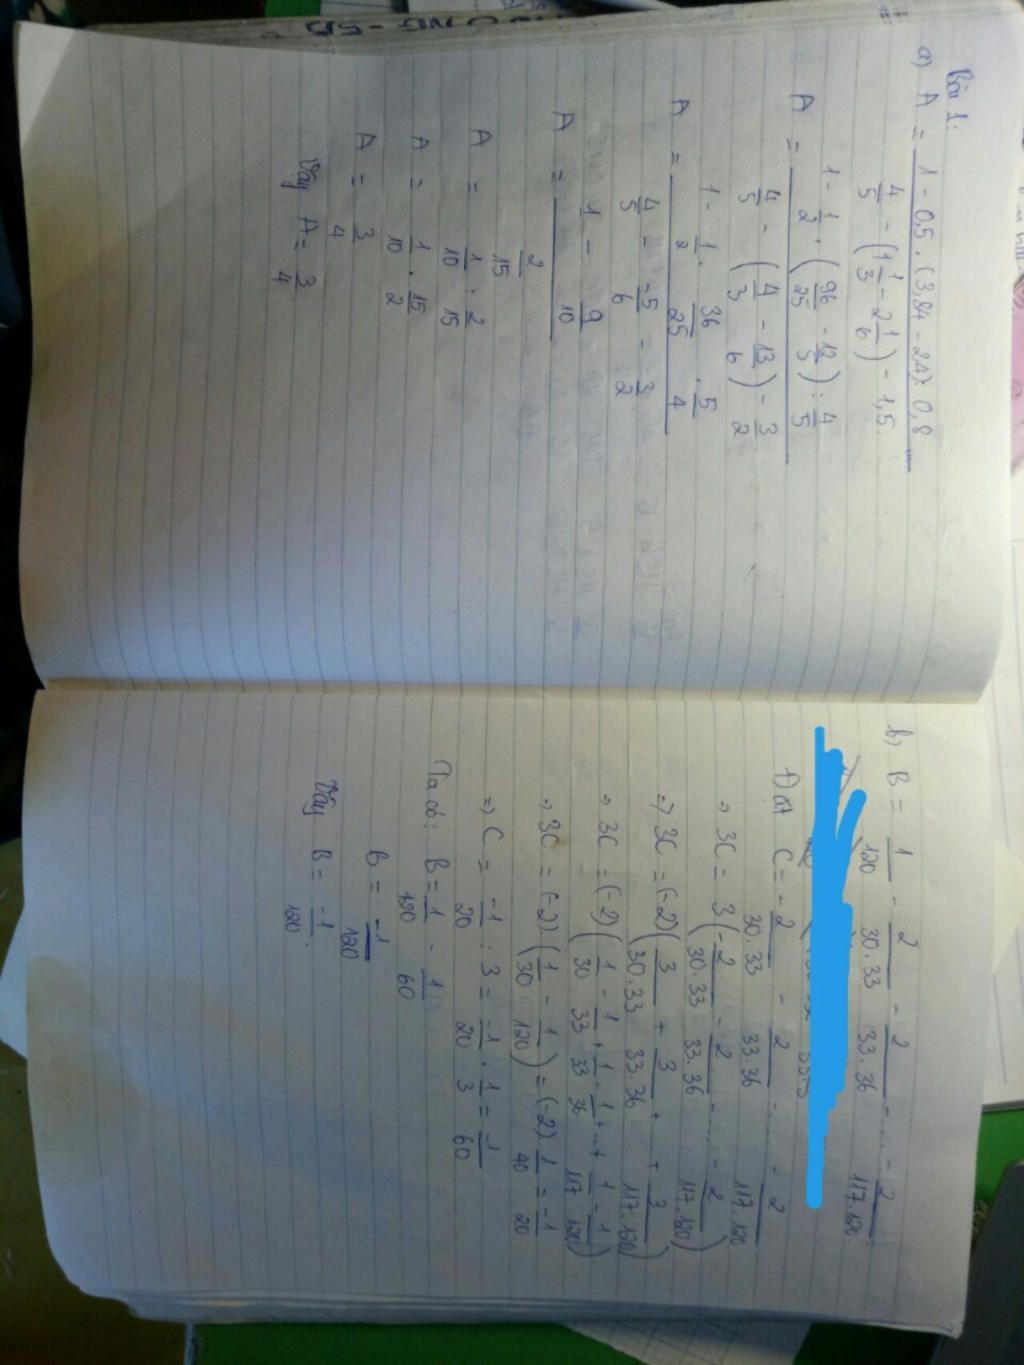 Bài 1:
a) A = 1 - 0,5 . (3,84 - 2,4) : 0,8 / 4/5 - (1 1/3 - 2 1/6) - 1,5
A = 1 - 1/2 . (96/25 - 12/5) : 4/5 / 4/5 - (4/3 - 13/6) - 3/2
A = 1 - 1/2 . 36/25 . 5/4 / 4/5 - -5/6 - 3/2
A = 1 - 9/10 / 2/15
A = 1/10 : 2/15
A = 1/10 . 15/2
A = 3/4
Vậy A = 3/4
b) B = 1/120 - 2/30.33 - 2/33.36 - ... - 2/117.120
Đặt C = -2/30.33 - 2/33.36 - ... - 2/117.120
=> 3C = 3(-2/30.33 - 2/33.36 - ... - 2/117.120)
=> 3C = (-2)(3/30.33 + 3/33.36 + ... + 3/117.120)
=> 3C = (-2)(1/30 - 1/33 + 1/33 - 1/36 + ... + 1/117 - 1/120)
=> 3C = (-2).(1/30 - 1/120) = (-2).1/40 = -1/20
=> C = -1/20 : 3 = -1/20 . 1/3 = -1/60
Ta có: B = 1/120 - 1/60
B = -1/120
Vậy B = -1/120.